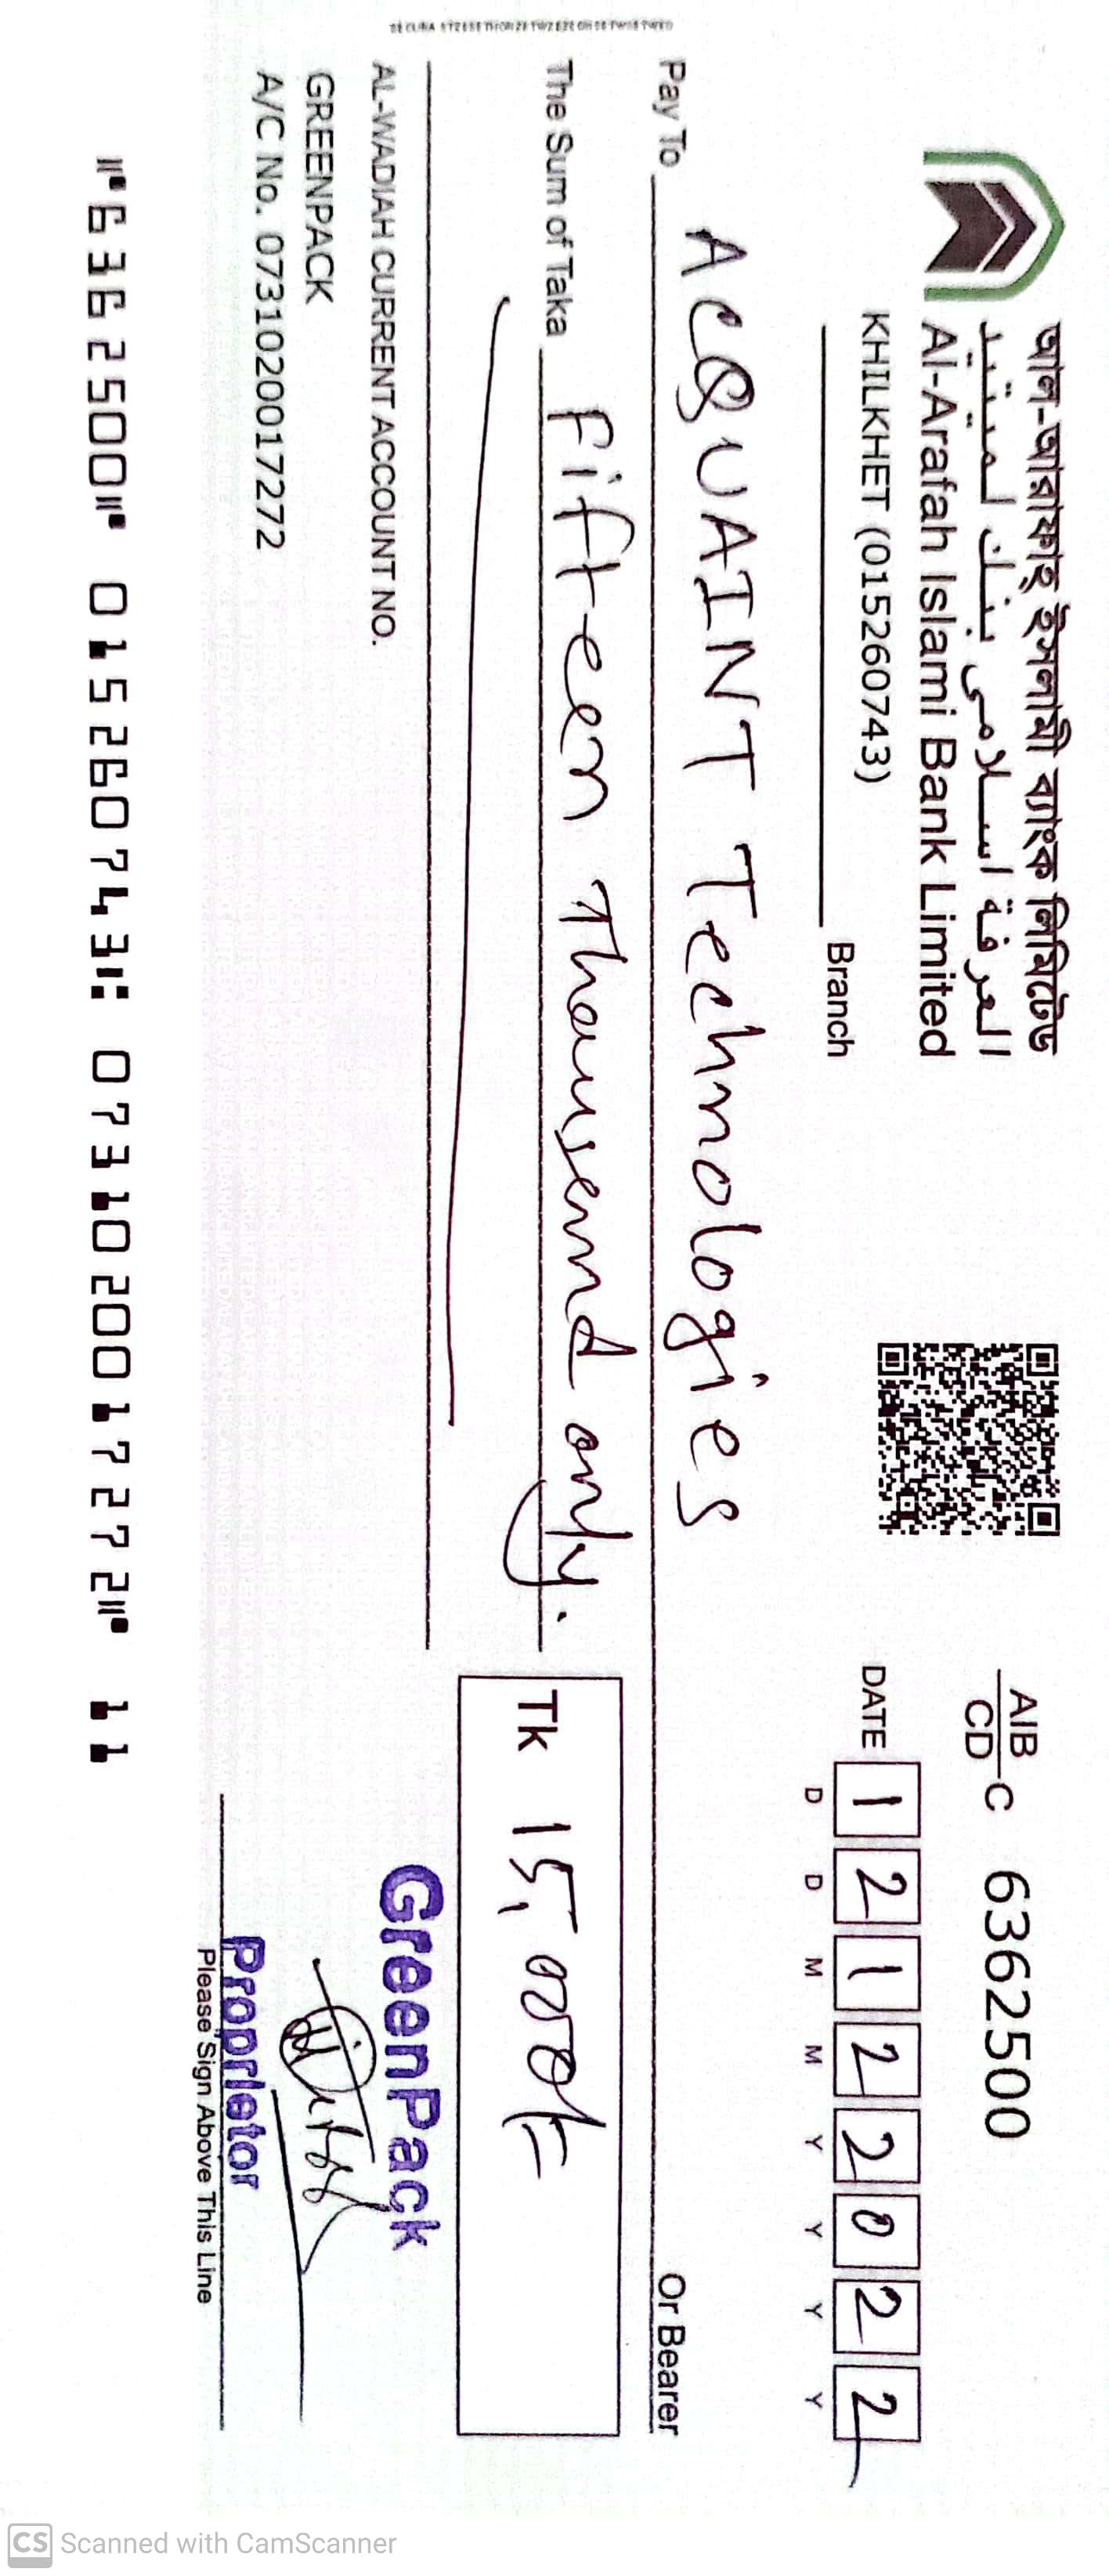 আল-আরাফাহ্ ইসলামী ব্যাংক লিমিটেড
العرفة اسلامى بنك لميتيد
Al-Arafah Islami Bank Limited
KHILKHET (015260743)
Branch
AIB
CD
C 6362500
DATE 1 2 1 2 2 0 2 2
D D M M Y Y Y Y
Pay To ACQUAINT Technologies Or Bearer
The Sum of Taka Fifteen Thousand only.
Tk 15,000/=
AL-WADIAH CURRENT ACCOUNT NO.
GREENPACK
A/C No. 0731020017272
GreenPack
Proprietor
Please Sign Above This Line
⑈6362500⑈ 015260743⑆ 0731020017272⑈ 11
CS Scanned with CamScanner